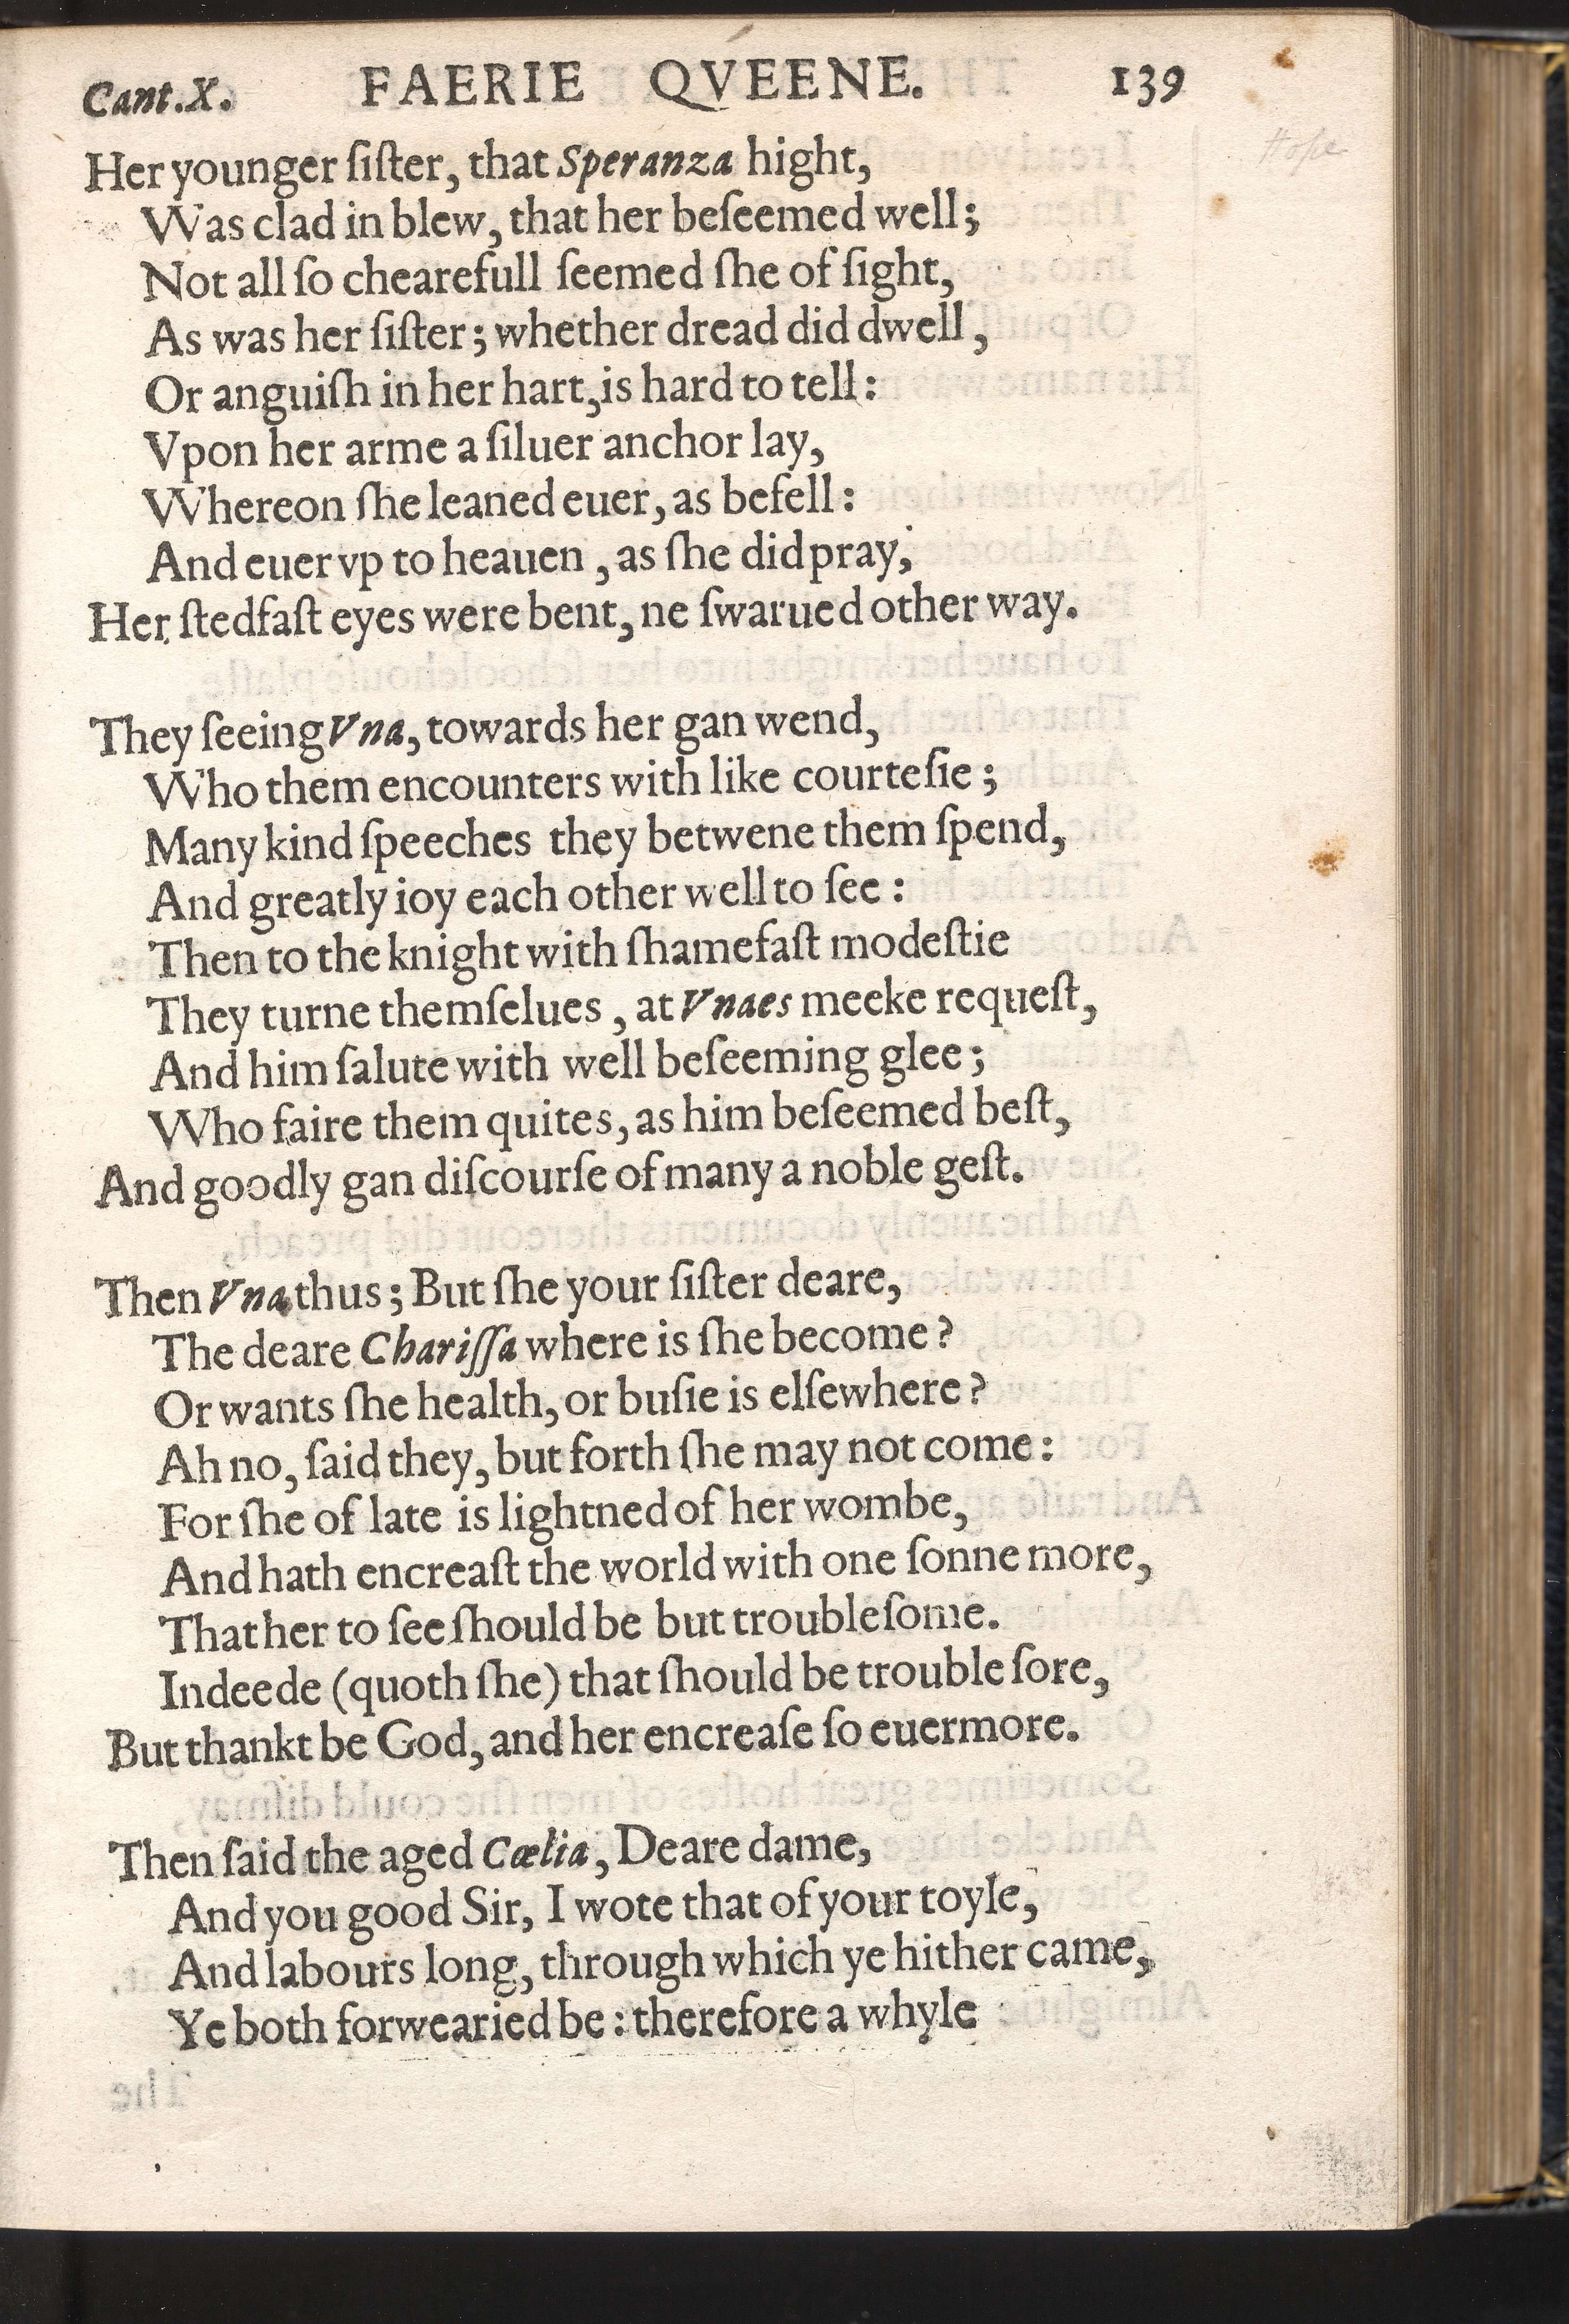 Cant.X. FAERIE QVEENE. 139
Hope
Her younger ſiſter, that Speranza hight,
Was clad in blew, that her beſeemed well;
Not all ſo chearefull ſeemed ſhe of ſight,
As was her ſiſter; whether dread did dwell,
Or anguiſh in her hart, is hard to tell:
Vpon her arme a ſiluer anchor lay,
Whereon ſhe leaned euer, as befell:
And euer vp to heauen, as ſhe did pray,
Her ſtedfaſt eyes were bent, ne ſwarued other way.
They ſeeing Vna, towards her gan wend,
Who them encounters with like courteſie;
Many kind ſpeeches they betwene them ſpend,
And greatly ioy each other well to ſee:
Then to the knight with ſhamefaſt modeſtie
They turne themſelues, at Vnaes meeke requeſt,
And him ſalute with well beſeeming glee;
Who faire them quites, as him beſeemed beſt,
And goodly gan diſcourſe of many a noble geſt.
Then Vna thus; But ſhe your ſiſter deare,
The deare Chariſſa where is ſhe become?
Or wants ſhe health, or buſie is elſewhere?
Ah no, ſaid they, but forth ſhe may not come:
For ſhe of late is lightned of her wombe,
And hath encreaſt the world with one ſonne more,
That her to ſee ſhould be but troubleſome.
Indeede (quoth ſhe) that ſhould be trouble ſore,
But thankt be God, and her encreaſe ſo euermore.
Then ſaid the aged Cœlia, Deare dame,
And you good Sir, I wote that of your toyle,
And labours long, through which ye hither came,
Ye both forwearied be: therefore a whyle